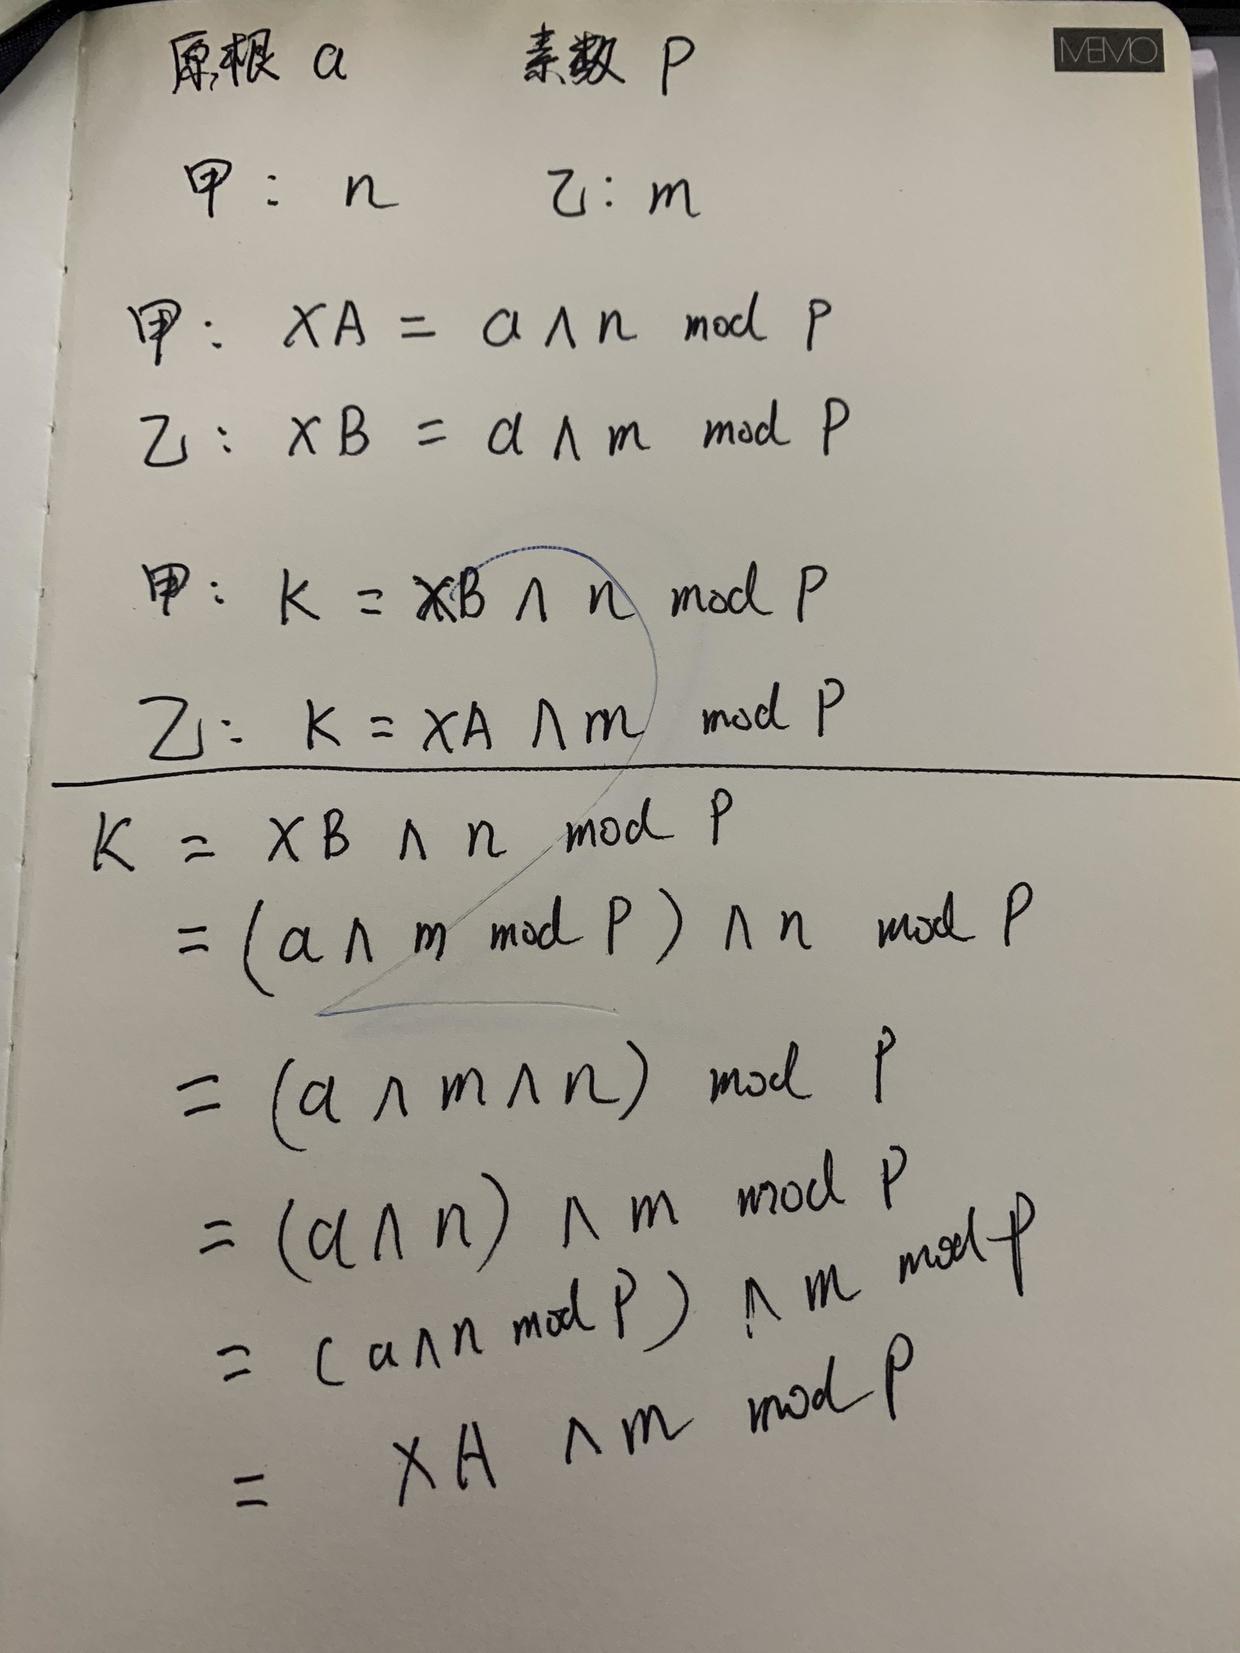 原根 a 素数 p MEMO
甲: n 乙: m
甲: XA = a ∧ n mod p
乙: XB = a ∧ m mod p
甲: K = XB ∧ n mod p
乙: K = XA ∧ m mod p
K = XB ∧ n mod p
= (a ∧ m mod p) ∧ n mod p
= (a ∧ m ∧ n) mod p
= (a ∧ n) ∧ m mod p
= (a ∧ n mod p) ∧ m mod p
= XA ∧ m mod p